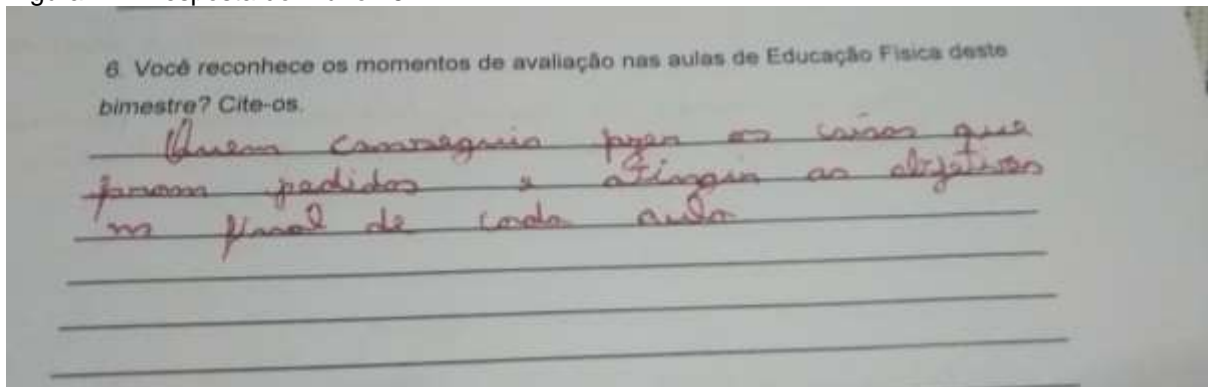 6. Você reconhece os momentos de avaliação nas aulas de Educação Física deste
bimestre? Cite-os.
Quem conseguiu fazer as coisas que
foram pedidas e atingir os objetivos
no final de cada aula